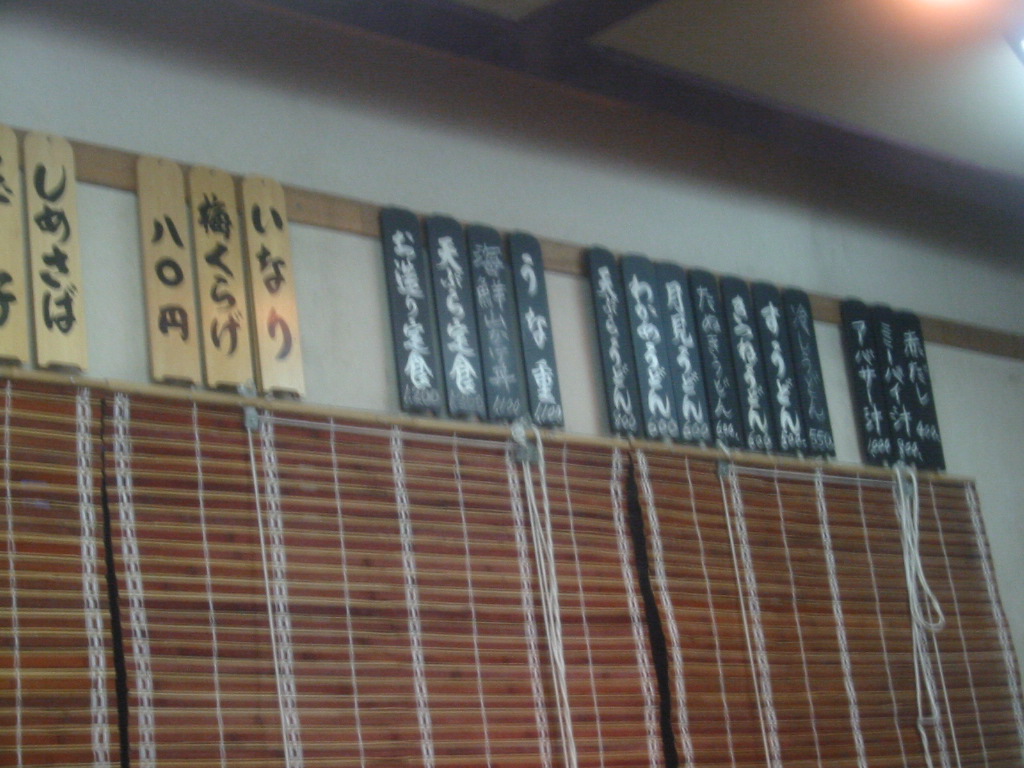 しめさば
八〇円
梅くらげ
いなり
お造り定食
天ぷら定食
海鮮
うな重
天ぷらうどん
わかめうどん 600
月見うどん 600
たぬきうどん
きつねうどん
すうどん
冷しうどん 550
アバサー汁
ミーバイ汁
赤だし